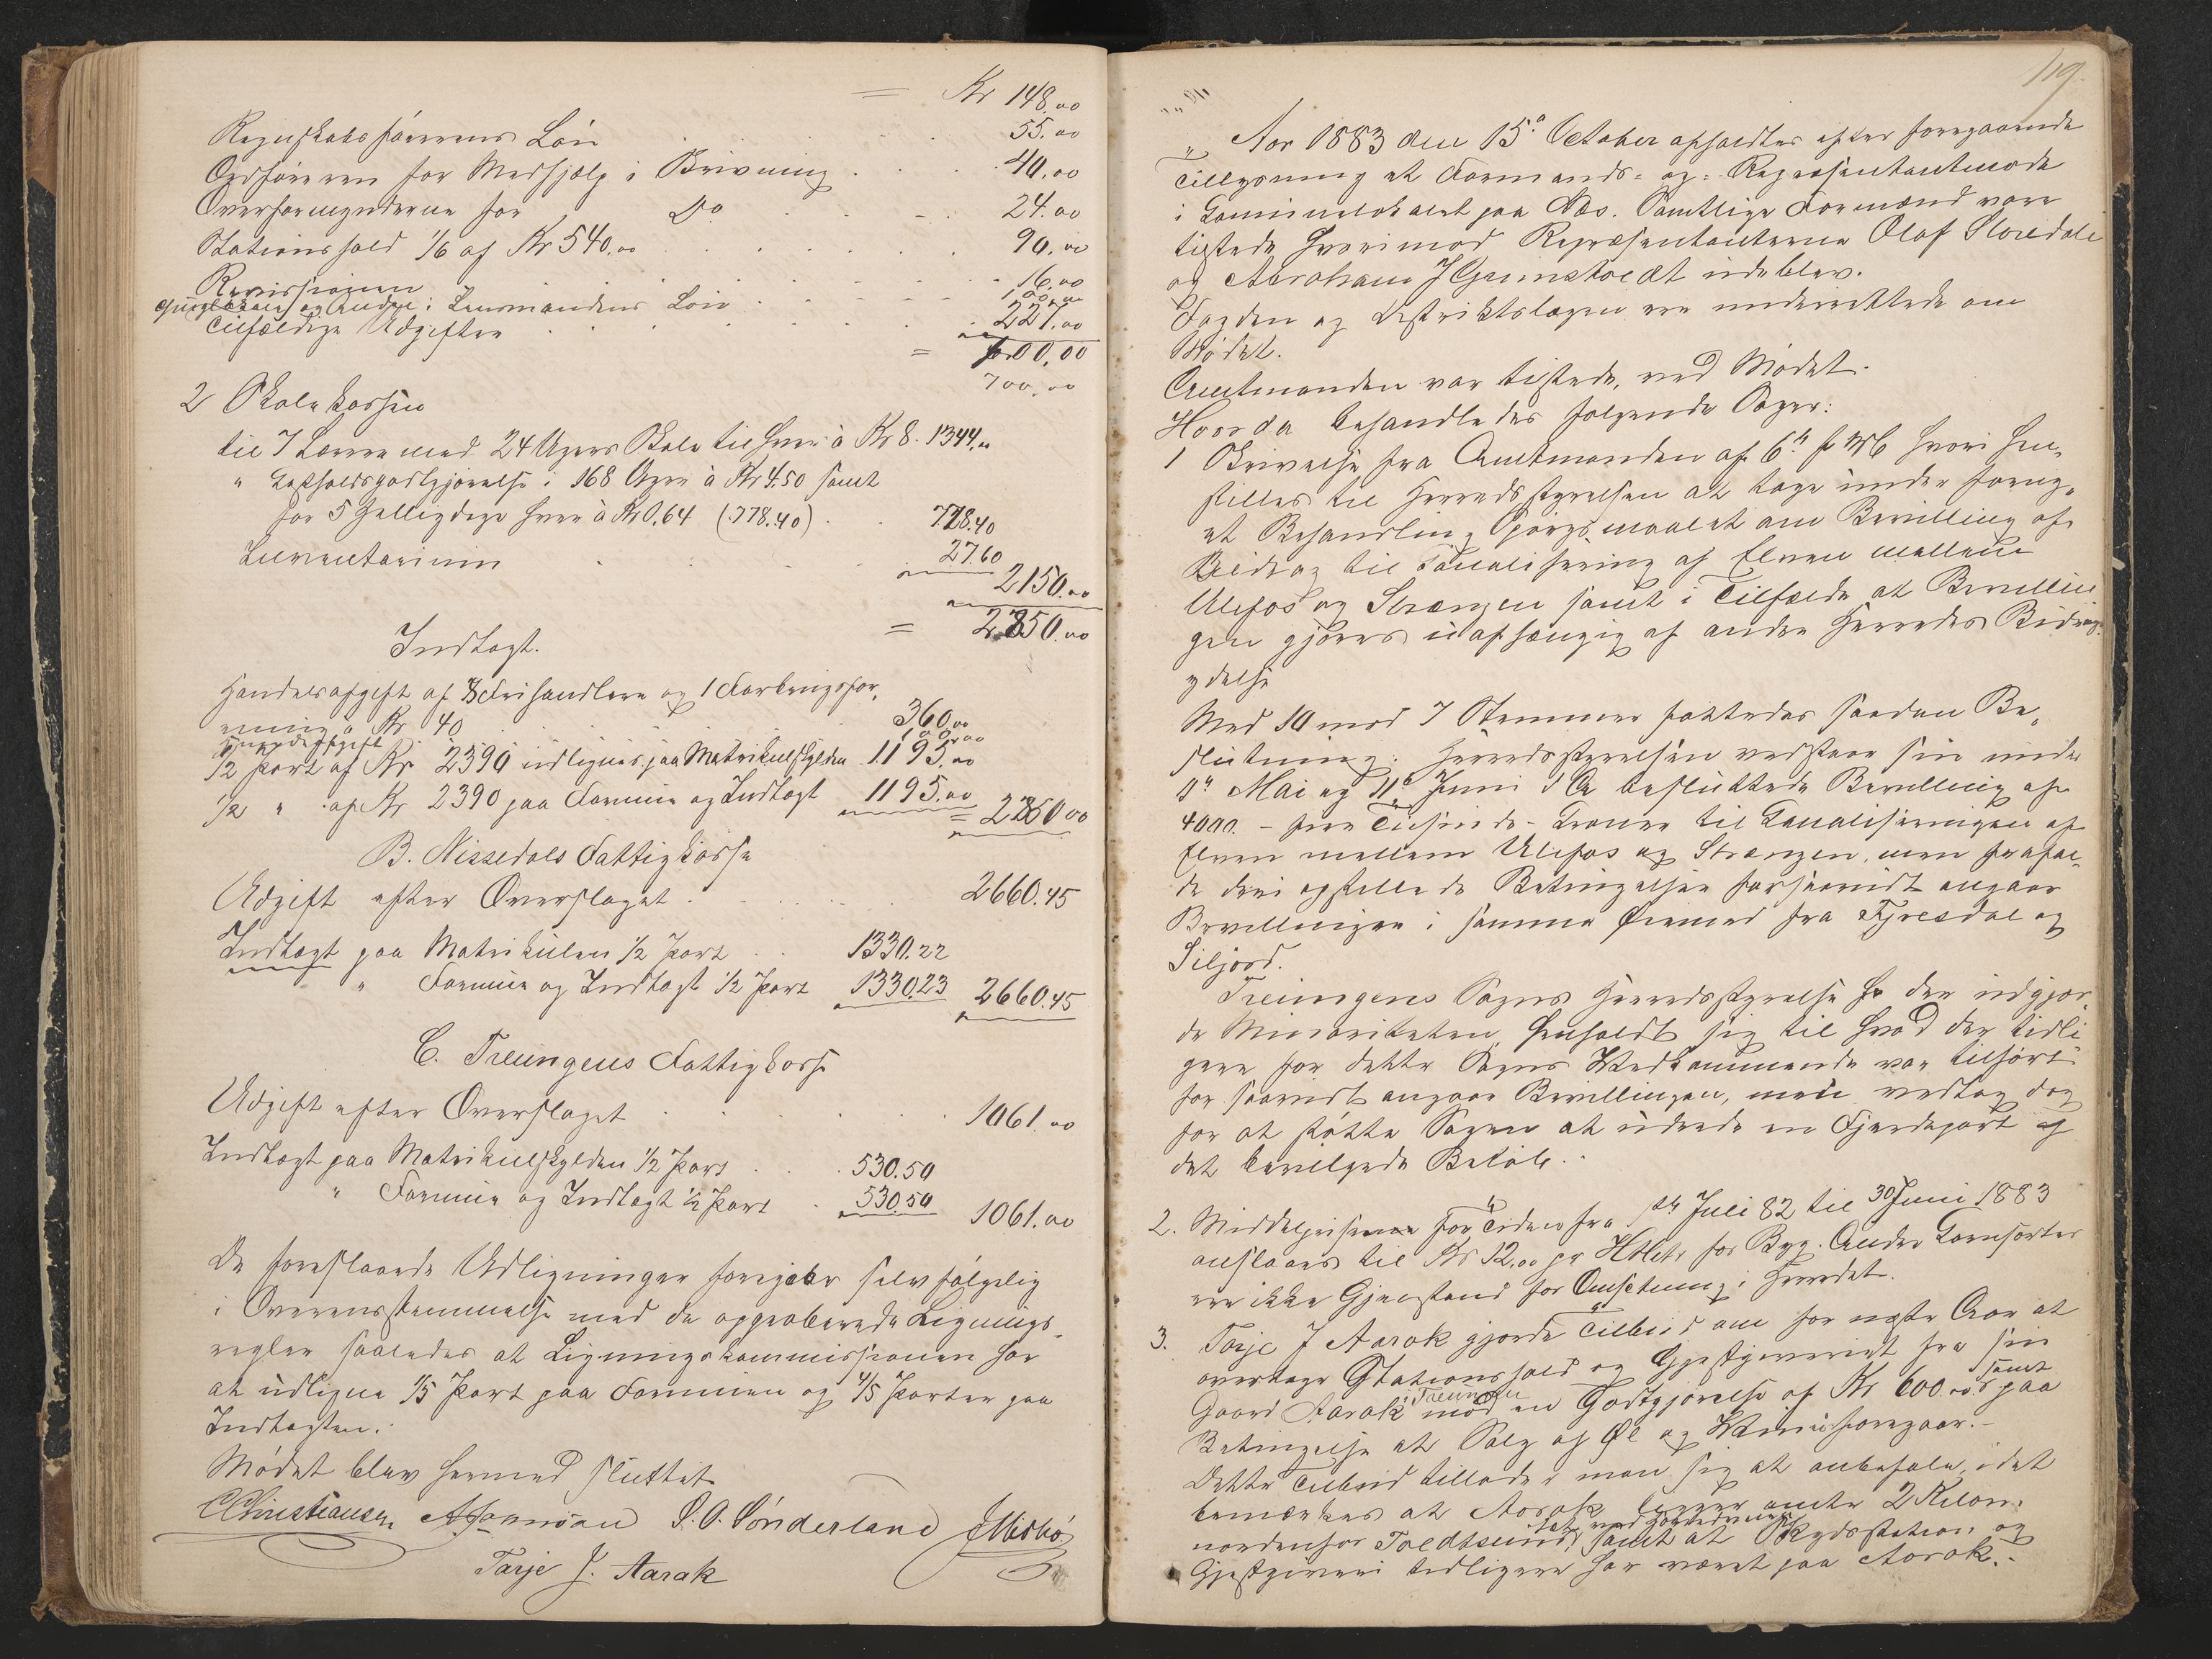 = Kr 148.00
Regnskabsførerens Løn 55.00
Ordføreren for Medhjælp i Skrivning 40.00
Overformynderne for Do 24.00
Stationshold 1/6 af Kr 540.00 90.00
Revissionen 16.00
og Andre i Lensmandens Løn 100.00
Tilfældige Udgifter 227.00
= 700.00
700.00
2 Skolekassen
til 7 Lærere med 24 Ugers Skole til hver à Kr 8. 1344.00
" Kostholdsgodtgjørelse i 168 Uger à Kr 4.50 samt
for 5 Helligdage hver à Kr 0.64 (778.40) 778.40
Inventarium 27.60
2150.00
= 2850.00
Indtægt.
Handelsafgift af 8 Frihandlere og 1 Farbringsfor-
rening à Kr 40 360.00
100.00
1/2 Part af Kr 2390 udlignes paa Matrikulskylden 1195.00
1/2 " af Kr 2390 paa Formue og Indtægt 1195.00
= 2850.00
B. Nissedals Fattigkasse
Udgift efter Overslaget 2660.45
Indtægt paa Matrikulen 1/2 Part 1330.22
" Formue og Indtægt 1/2 Part 1330.23 2660.45
C. Treungens Fattigkasse
Udgift efter Overslaget 1061.00
Indtægt paa Matrikulskylden 1/2 Part 530.50
" Formue og Indtægt 1/2 Part 530.50 1061.00
De foreslaaede Udligninger foregaar selvfølgelig
i Overensstemmelse med de approberede Lignings-
regler saaledes at Ligningskommissionen har
at udligne 1/5 Part paa Formuen og 4/5 Parter paa
Indtægten.
Mødet blev hermed sluttet
CChristiansen S. O. Sønderland
Tarje J. Aarak
119.
Aar 1883 den 15de October afholdtes efter foregaaende
Tillysning et Formands- og Repræsentantmøde
i Communelokalet paa Næs. Samtlige Formænd vare
tilstede hvorimod Repræsentanterne Olaf
og Abraham J Grimstvedt udeblev.
Fogden og Distriktslægen ere underrettede om
Mødet.
Amtmanden var tilstede, ved Mødet.
Hvorda behandledes følgende Sager:
1 Skrivelse fra Amtmanden af 6te hvori hen-
stilles til Herredsstyrelsen at tage under fornyet
Behandling Spørgsmaalet om Bevilling af
Bidrag til Canalisering af Elven mellem
Ulefos og Strængen samt i Tilfælde at Bevillin
gen gjøres uafhængig af andre Herreders Bidrags-
ydelse
Med 10 mod 7 Stemmer fattedes saadan Be-
slutning: Herredsstyrelsen vedstaar sin under
Mai og 11te Juni d A besluttede Bevilling af
4000. - fire Tusinde - Kroner til Canaliseringen af
Elven mellem Ulefos og Strængen, men frafal-
de den opstillede Betingelse forsaavidt angaar
Bevillingen i samme Øiemed fra Fyresdal og
Siljord.
Treungens Sogns Herredsstyrelse der udgjor-
de Minoriteten, henholdt sig til hvad der tidli
gere for dette Sogns Vedkommende var tilført
for saavidt angaar Bevillingen, men vedtog dog
for at støtte Sagen at udrede en Fjerdepart af
det bevilgede Beløb.
2. Middelprisen for Tiden fra 1ste Juli 82 til 30 Juni 1883
ansloges til Kr 12.00 pr Hktltr for Byg. Andre Kornsorter
ere ikke Gjenstand for Omsetning i Herredet.
3. Tarje J Aarak gjorde Tilbud om for næste Aar at
overtage Stationshold og Gjestgiveriet fra sin
Gaard Aarak i Treungen mod en Godtgjørelse af Kr 600.00 samt paa
Betingelse at Salg af Øl og Viin foregaar.-
Dette Tilbud tillader man sig at anbefale, idet
bemærkes at Aarak ligger omtr 2 Kilom.
nordenfor Tvedtsund, tæt ved Hovedveien samt at Skydsstation og
Gjestgiveri tidligere har været paa Aarak.-